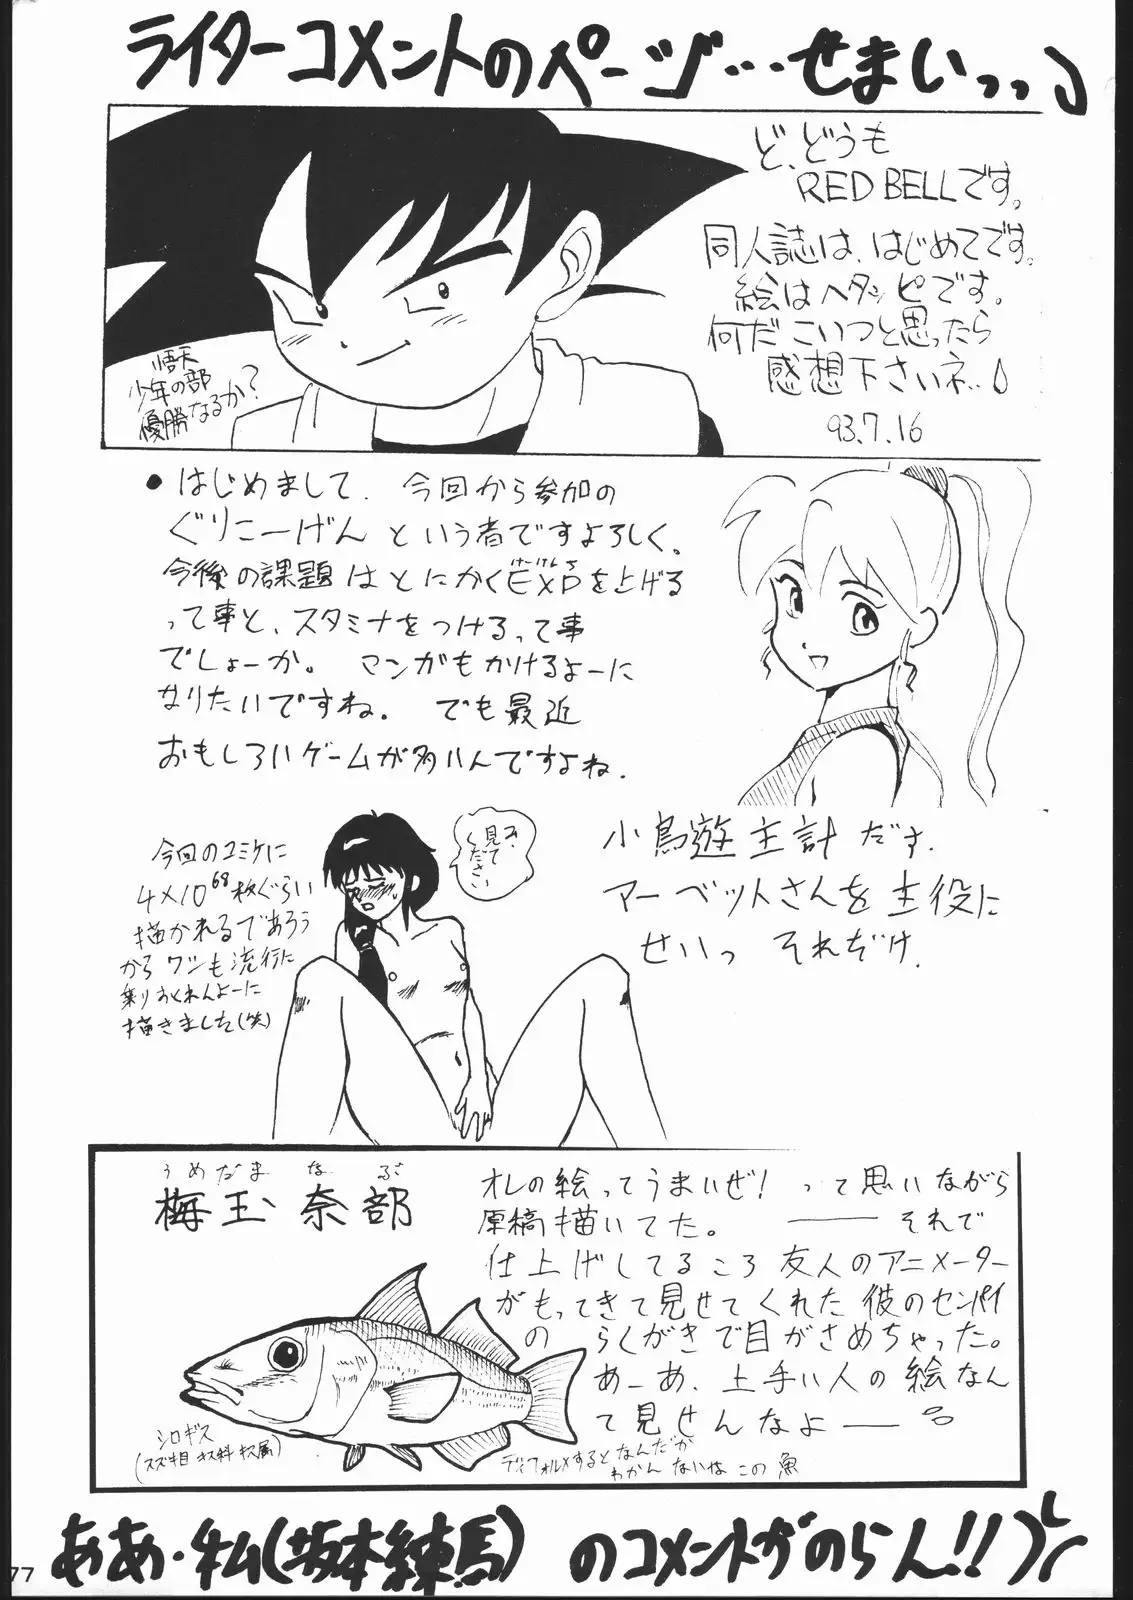 ライターコメントのページ…せまいっっ
ど、どうも
RED BELLです。
同人誌は、はじめてです。
絵はヘタッピです。
何だこいつと思ったら
感想下さいネ。
93.7.16
悟天
少年の部
優勝なるか?
●はじめまして、今回から参加の
ぐりこーげん という者ですよろしく。
今後の課題はとにかくExpを上げる
けーけんち
って事と、スタミナをつけるって事
でしょーか。 マンガもかけるよーに
なりたいですね。 でも最近
おもしろいゲームが多いんですよね.
今回のコミケに
4×10⁶⁸枚ぐらい
描かれるであろう
からワシも流行に
乗りおくれんよーに
描きました(笑)
み、
見て
ください
小鳥遊主計 だす.
マーベットさんを主役に
せいっ それだけ.
うめだま なぶ
梅玉 奈部
オレの絵ってうまいぜ! って思いながら
原稿描いてた。 ―― それで
仕上げしてるころ 友人のアニメーター
がもってきて見せてくれた 彼のセンパイ
の らくがきで目がさめちゃった。
あーあ、上手い人の絵なん
て見せんなよ――
シロギス
(スズキ目 キス科 キス属)
ディフォルメするとなんだか
わかんないな この魚
ああ・私(坂本練馬) のコメントがのらん!!
77